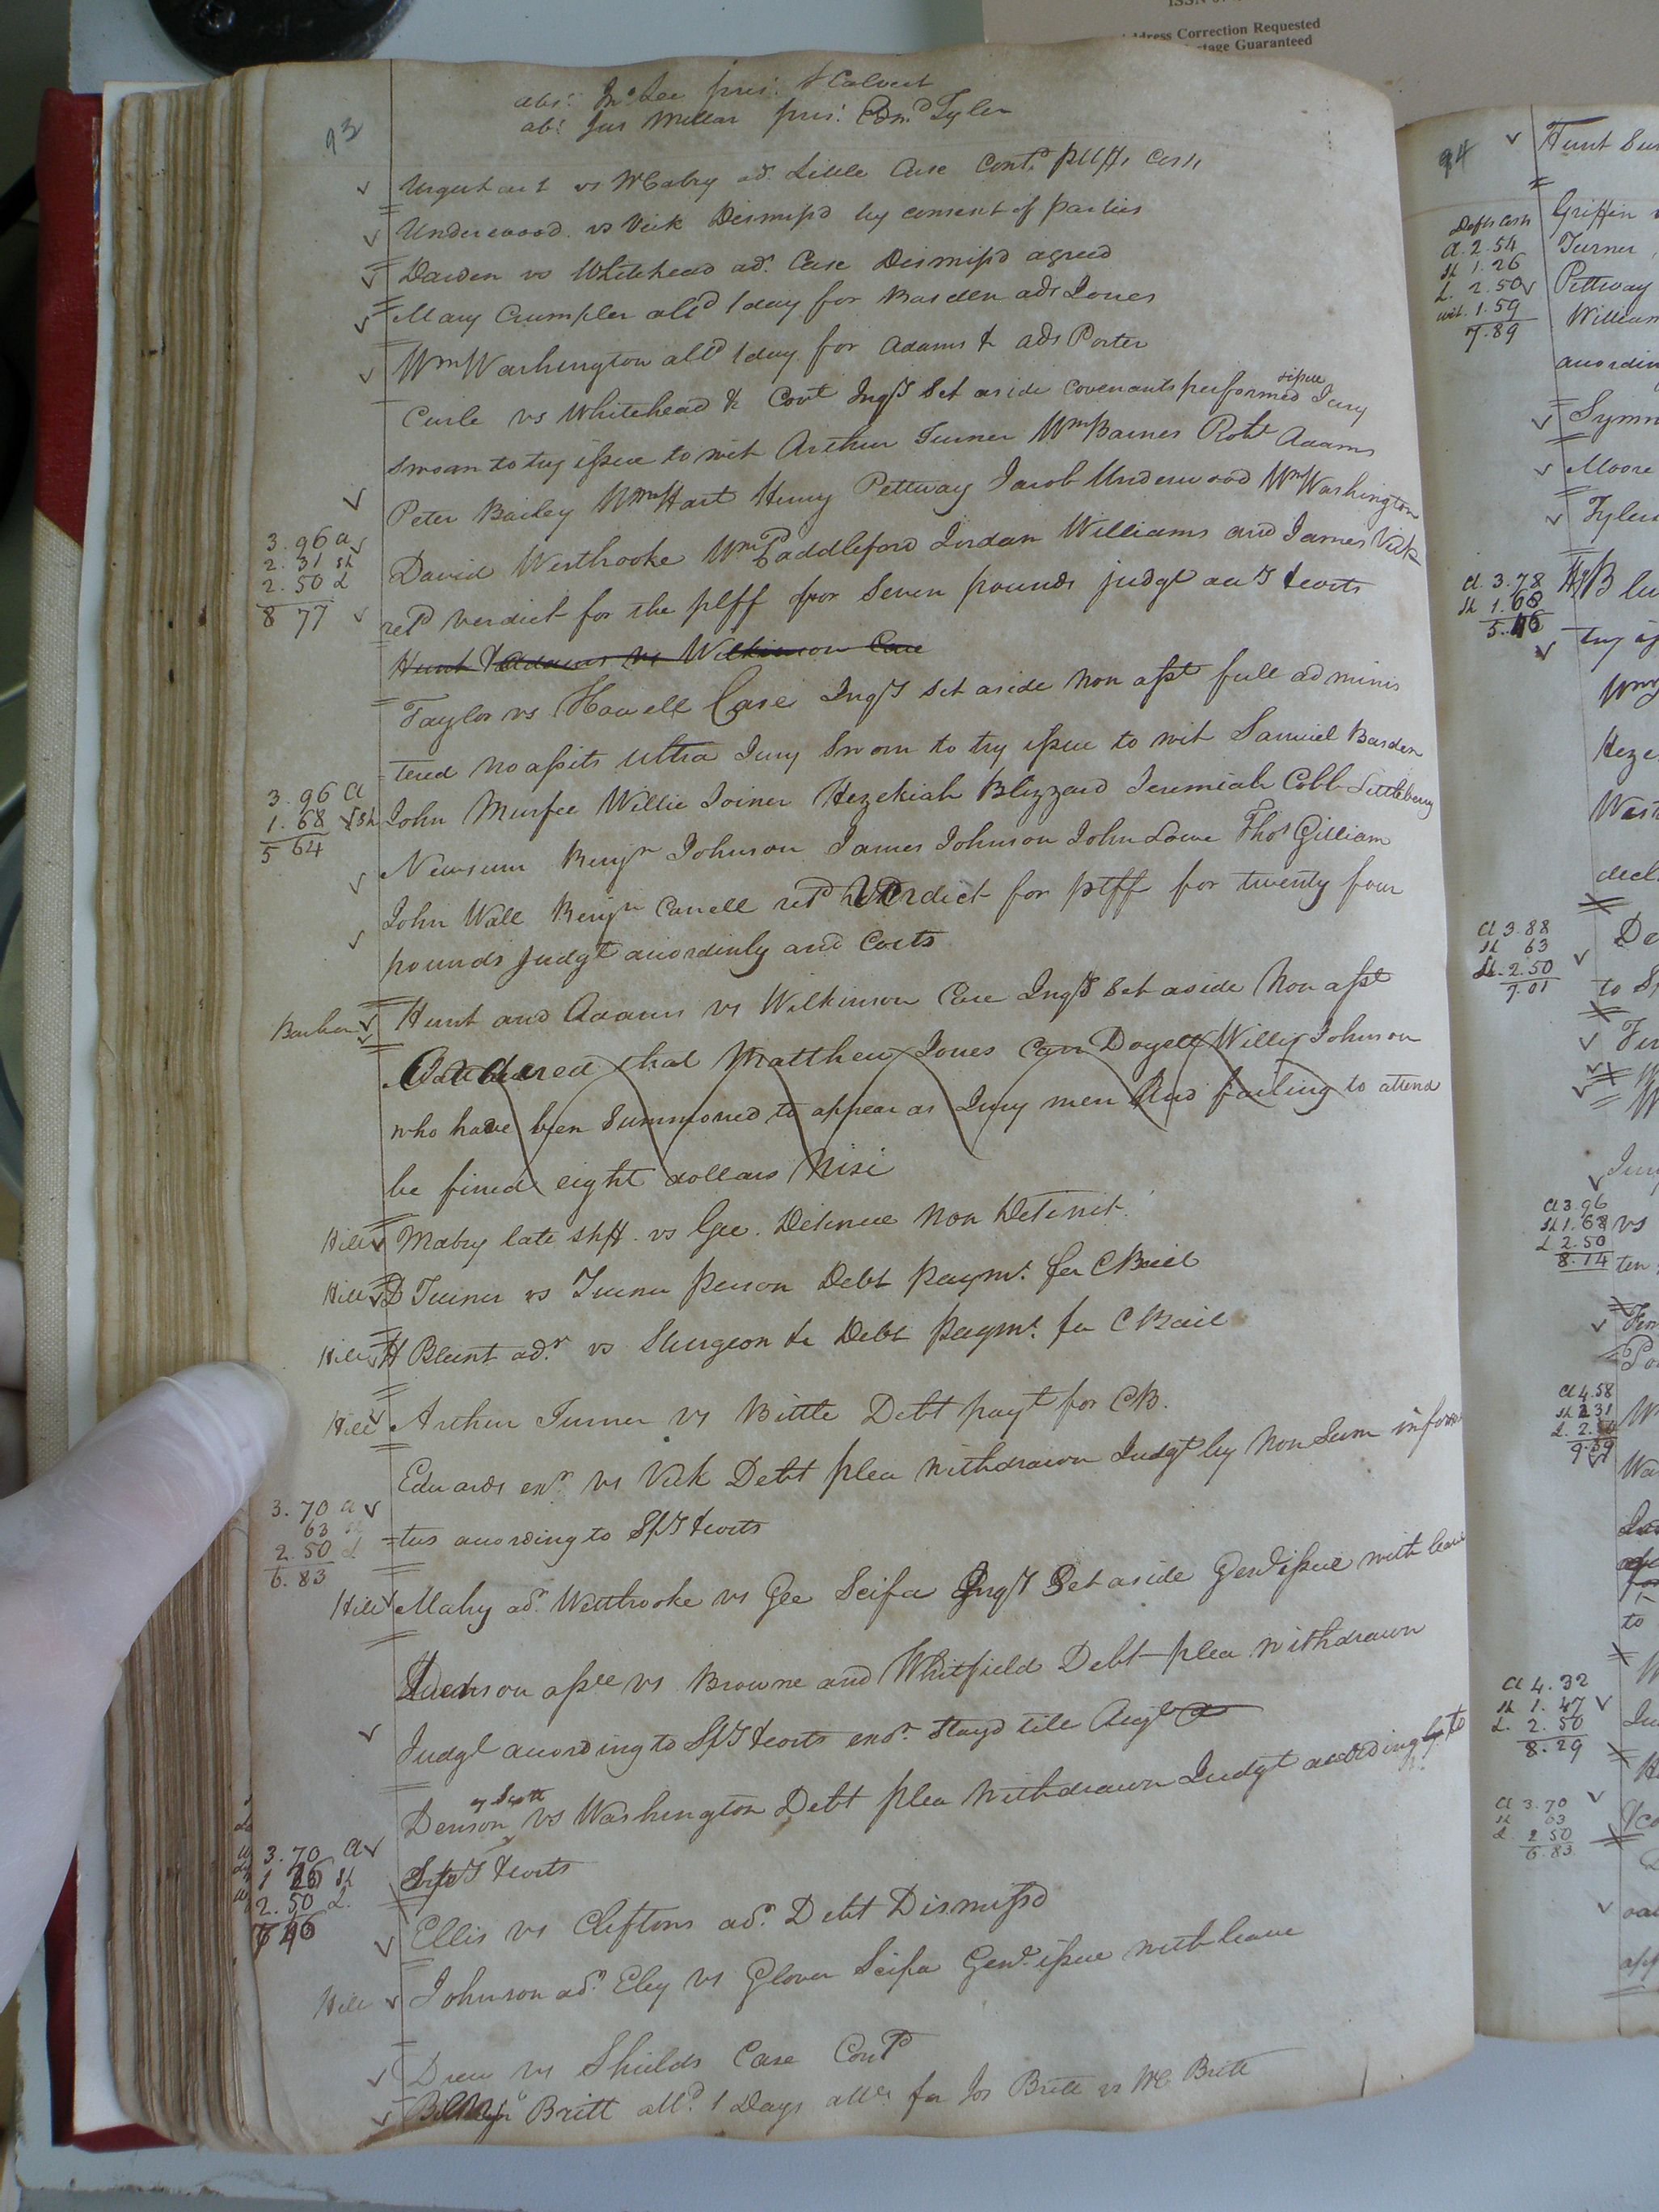 ISSN
Address Correction Requested
Postage Guaranteed
93
abs. Jno Lee pres. S Calvert
abs. Jas Millar pres. Edmd Tyler
Urquhart vs Mabry adr. Little Case Contd pltfs Costs
Underwood vs Vick Dismissd by consent of parties
Darden vs Whitehead adr. Case Dismissd agreed
Mary Crumpler alld 1 day for Barden ads Jones
Wm Washington alld 1 day for Adams & ads Porter
Curle vs Whitehead & Covt Ingt Set aside covenants performed issue Jury
Sworn to try issue to wit Arthur Turner Wm Barnes Robt Adams
Peter Bailey Wm Hart Henry Pettway Jacob Underwood Wm Washington
David Westbrooke Wm Paddleford Jordan Williams and James Vick
retd Verdict for the pltff for Seven pounds judgt &costs
3.96 a
2.31 sh
2.50 L
8 77
Hunt & Adams vs Wilkinson Case
Taylor vs Howell Case Ingt Set aside Non asst full adminis
tered no assits ultra Jury Sworn to try issue to wit Samuel Barden
John Murfee Willie Joiner Hezekiah Blizzard Jeremiah Cobb Littleberry
3.96 a
1.68 sh
5 64
Newsum Benjn Johnson James Johnson John Lowe Thos Gilliam
John Wall Benjn Carrell retd Verdict for ptff for twenty four
pounds Judgt acordinly and Costs
Hunt and Adams vs Wilkinson Case Ingt Set aside Non asst
Ordered that Matthew Jones Doyell Willis Johnson
who have been Summoned to appear as Jury men And failing to attend
be fined eight dollars Nisi
Hill Mabry late shff. vs Gee. Detenue Non Detinit.
Hill B Turner vs Turner Person Debt paymt. for C Bail
Hill H Blunt adr. vs Sturgeon &c Debt Paymt. for C Bail
Hill Arthur Turner vs Bittle Debt payt for CB.
Edwards exr. vs Vick Debt plea withdrawn Judgt by Non Sum informa
=tus acording to Spt &costs
3.70 a
63 sh
2.50 L
6.83
Hill Mabry adr. Westbrooke vs Gee Scifa Ingt Set aside Genl issue with leave
Judson assee vs Browne and Whitfield Debt plea withdrawn
Judgt acording to Spt &costs exn. Stayd till Augt
Denson vs Washington Debt plea withdrawn Judgt acording to
Spt &costs
3.70 a
1 26 sh
2.50 L.
7 46
Ellis vs Cliftons adr. Debt Dismissd
Hill Johnson adr. Eley vs Glover Scifa Genl. issue with leave
Drew vs Shields Case Contd
Britt alld. 1 Days attce for Jos Britt vs Britt
94
Hunt
Griffin
Turner
Pettway
Defts Costs
a. 2.54
sh 1.26
L. 2.50
wit. 1.59
7.89
acordin
Moore
Tyler
a. 3.78
sh 1.68
5.46
try
Heze
West
decl
a 3.88
sh 63
L. 2.50
7.01
De
Jury
a 3.96
sh 1.68
L 2.50
8.14
vs
ten
a 4.58
sh 2.31
L. 2.50
9.39
to
a 4.32
sh 1.47
L. 2.50
8.29
a 3.70
sh 63
L. 2.50
6.83